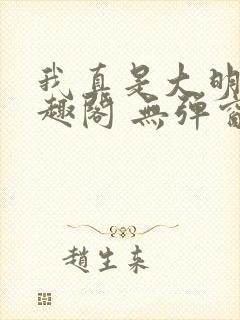 我真是大明
趣阁 無弹窗
趙生来